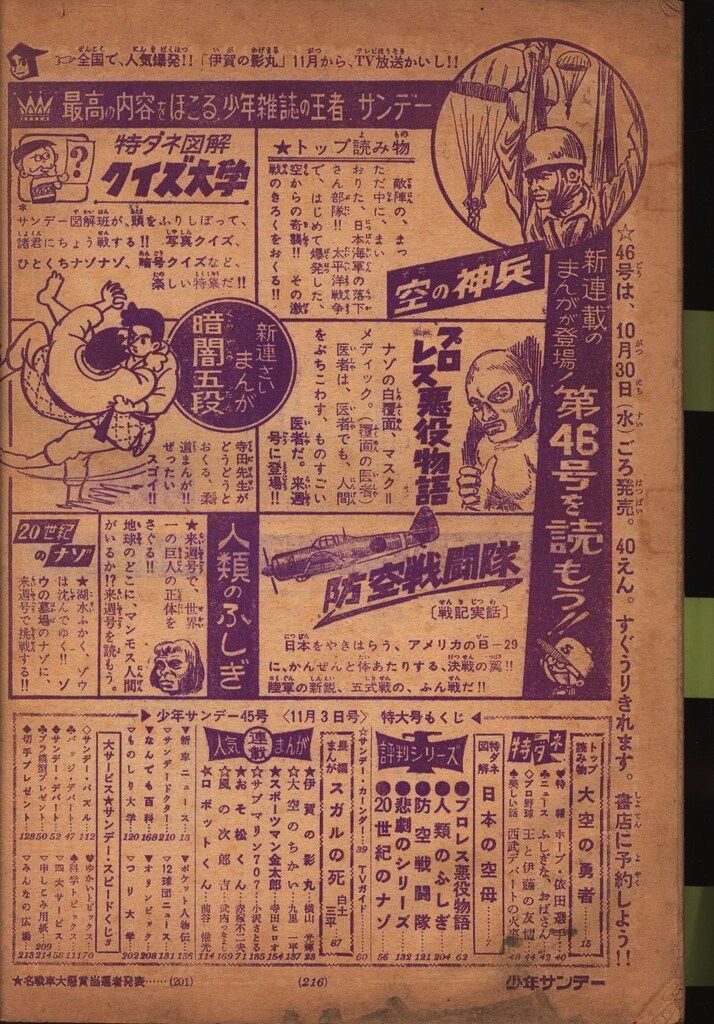 全国で、人気爆発!!「伊賀の影丸」11月から、TV放送かいし!!
最高の内容をほこる少年雑誌の王者 サンデー
☆46号は、10月30日(水)ごろ発売。40えん。すぐうりきれます。書店に予約しよう!!
新連載の
まんがが登場!
第46号を読もう!!
★トップ読み物
空の神兵
敵陣の、まっ
ただ中に、まい
おりた、日本海軍の落下
さん部隊!! 太平洋戦争
で、はじめて爆発した、
空からの奇襲!! その激
戦のきろくをおくる!!
特ダネ図解
クイズ大学
サンデー図解班が、頭をふりしぼって、
諸君にちょう戦する!! 写真クイズ、
ひとくちナゾナゾ、暗号クイズなど、
楽しい特集だ!!
プロレス悪役物語
ナゾの白覆面、マスク=
メディック。覆面の医者
医者は、医者でも、人間
をぶちこわす、ものすごい
医者だ。来週
号に登場!!
新連さい
まんが
暗闇五段
寺田先生が
どうどうと
おくる、柔
道まんが!!
ぜったい
スゴイ!!
防空戦闘隊
〔戦記実話〕
日本をやきはらう、アメリカのB-29
に、かんぜんと体あたりする、決戦の翼!!
陸軍の新鋭、五式戦の、ふん戦だ!!
人類のふしぎ
★来週号で、世界
一の巨人の正体を
さぐる!!
地球のどこに、マンモス人間
がいるか!?来週号を読もう。
20世紀
のナゾ
★湖水ふかく、ゾウ
は沈んでゆく!! ゾ
ウの墓場のナゾに、
来週号で挑戦する!!
▶少年サンデー45号〈11月3日号〉特大号もくじ◀
トップ
読み物
大空の勇者……15
特ダネ
♥特報 ホープ・依田選手 40
♣ニュース ふしぎな、おばさん 42
◇プロ野球 王と伊藤の友情 44
♠美しい話 西武デパートの火事
特ダネ
図解
日本の空母……7
評判シリーズ
●プロレス悪役物語 62
●人類のふしぎ 204
●防空戦闘隊 121
●悲劇のシリーズ 132
●20世紀のナゾ 56
☆サンデー・カレンダー…39 TVガイド…60
人気連載まんが
長編
まんが
スガルの死 白土三平 87
☆伊賀の影丸 横山光輝 23
☆大空のちかい 九里一平 97
★スポーツマン金太郎 寺田ヒロオ 154
☆サブマリン707 小沢さとる 185
★おそ松くん 赤塚不二夫 71
☆風の次郎吉 武内つなよし 169
☆ロボットくん 前谷惟光 114
▼新車ニュース 13
▼サンデードクター 210
▼なんでも百科 168
▼ものしり大学 120
▼ポケット人物伝 136
▼12球団ニュース 131
▼オリンピック 208
▼つり大学 202
大サービス★サンデー・スピードくじ 3
◇サンデー・パズル 112
♣バッジ・デパート 47
♠サンデー・デパート 52
♣プラ模型プレゼント 50
♠切手プレゼント 128
♥ゆかいトピックス 170
♠科学トピックス
♥四大サービス
♥申しこみ用紙 209
♥みんなの広場
★名戦車大懸賞当選者発表……(201)
(216)
少年サンデー